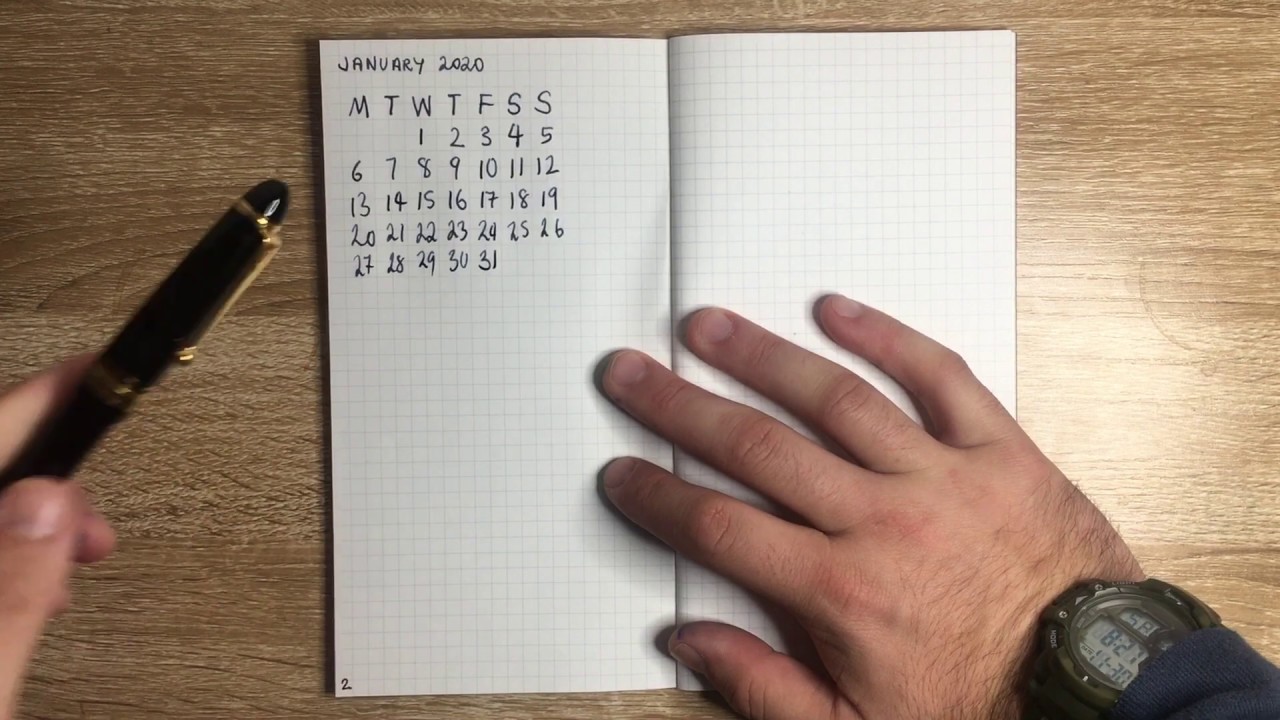 JANUARY 2020
M T W T F S S
1 2 3 4 5
6 7 8 9 10 11 12
13 14 15 16 17 18 19
20 21 22 23 24 25 26
27 28 29 30 31
2